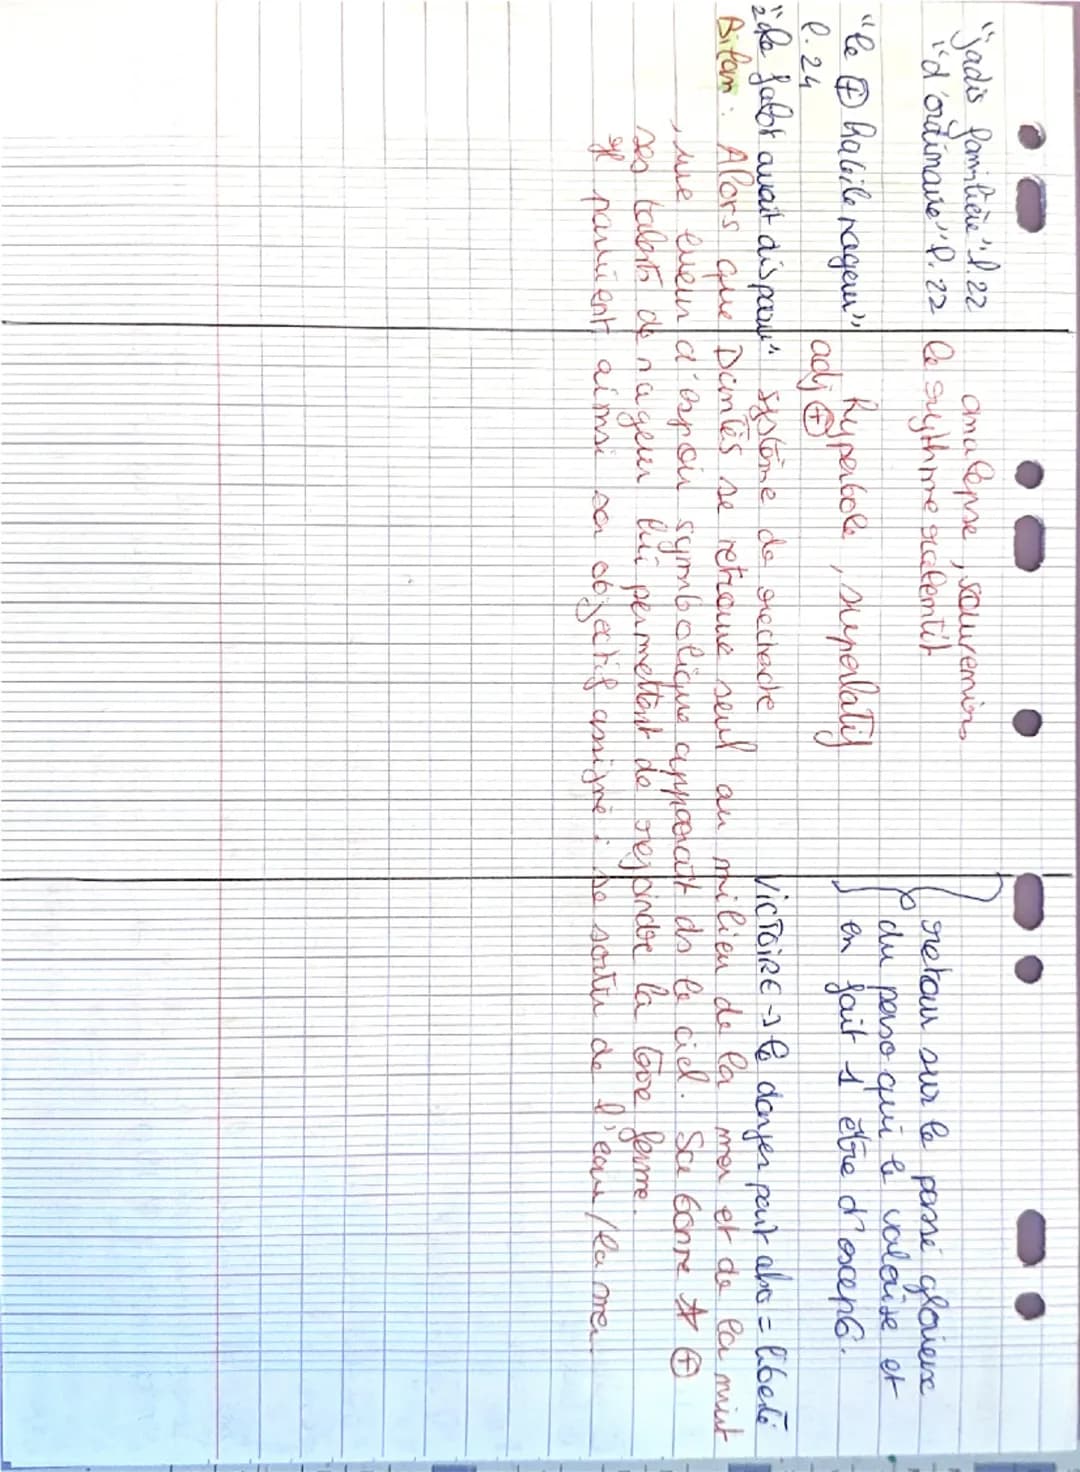 "jadis familière" l.22 analepse, souvenirs
"d'ordinaire" l.22 le rythme ralentit retour sur le passé glorieux
du perso qui le valorise et
"le ⊕ habile nageur" hyperbole, superlatif en fait 1 être d'except°.
l.24 adj ⊕
"le falot avait disparu" système de rechecte VICTOIRE → le danger peut abo = liberté
Bilan : Alors que Dantès se retrouve seul au milieu de la mer et de la nuit
, une lueur d'espoir symbolique apparaît ds le ciel. Sa bonne ☆ ⊕
ses talents de nageur lui permettent de rejoindre la terre ferme.
Il parvient ainsi son objectif assigné : se sortir de l'eau / la mer.